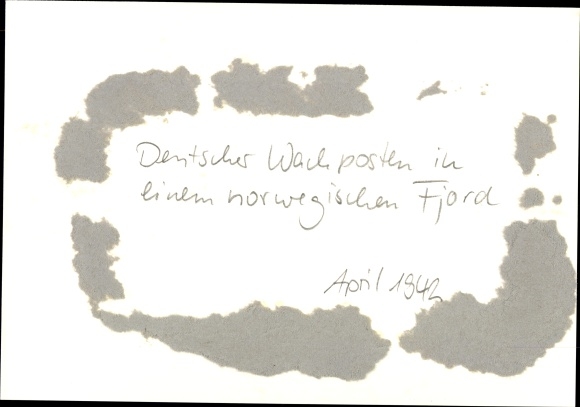 Deutscher Wachposten in
einem norwegischen Fjord
April 1942